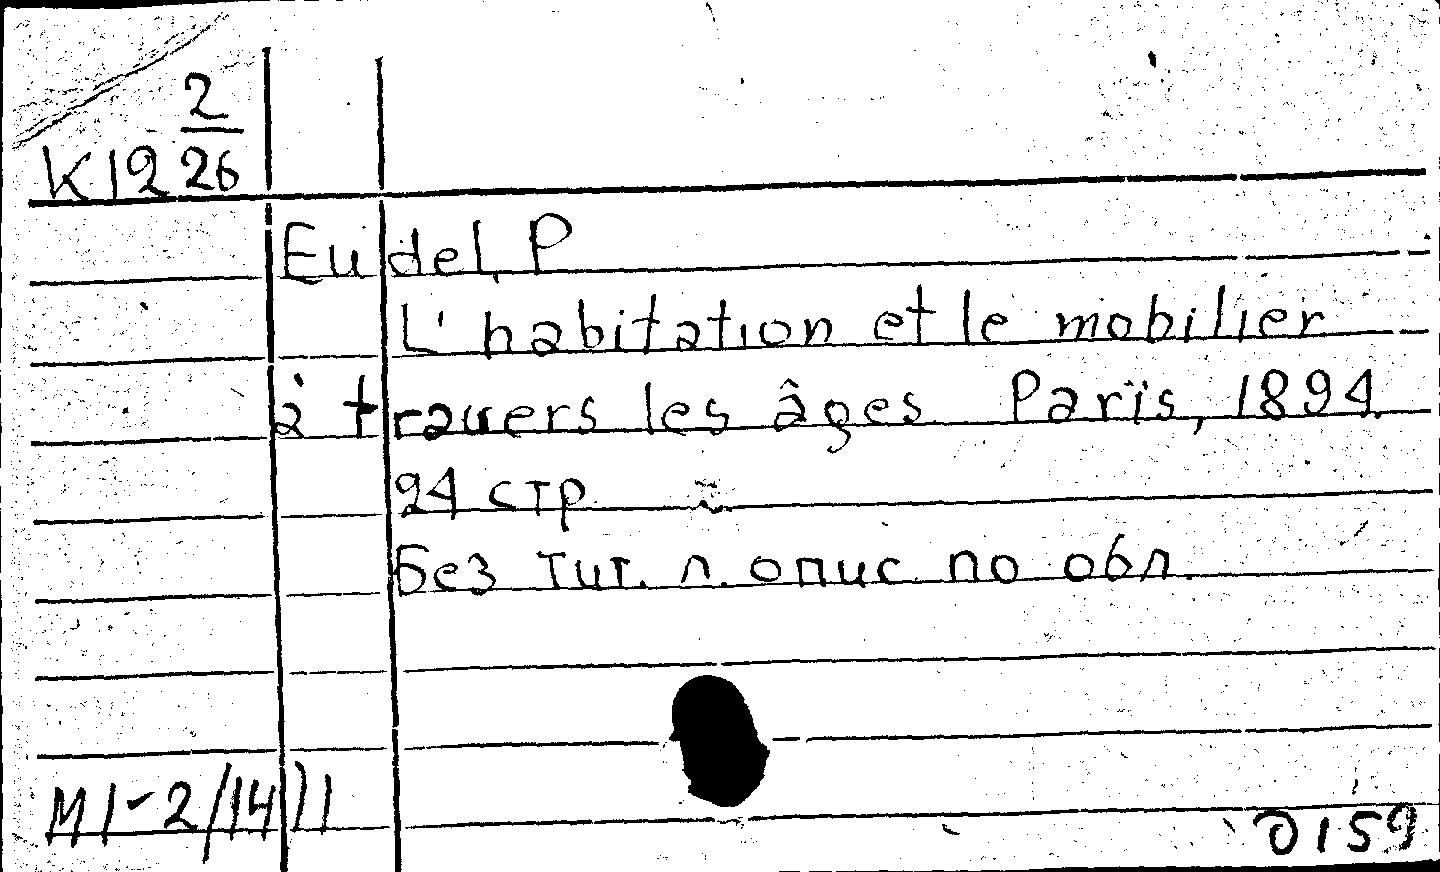 2
К 12 26
Eudel, P
L'habitation et le mobilier
à travers les âges. Paris, 1894.
24 стр.
Без тит. л. опис. по обл.
М 1-2/14
0159